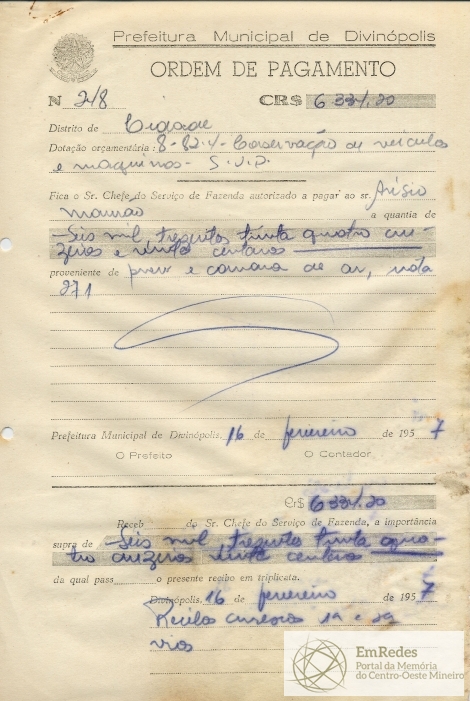 Prefeitura Municipal de Divinópolis
ORDEM DE PAGAMENTO
N 218 CR$ 6 334,20
Distrito de Cidade
Dotação orçamentária: 8-82-4- Conservação de veiculos
e maquinas - S.V.P.
Fica o Sr. Chefe do Serviço de Fazenda autorizado a pagar ao sr. Anisio
a quantia de
Seis mil trezentos trinta quatro cru-
zeiros e vinte centavos
proveniente de pneu e camara de ar, nota
271
Prefeitura Municipal de Divinópolis, 16 de fevereiro de 1957
O Prefeito O Contador
Cr$ 6 334,20
Receb do Sr. Chefe do Serviço de Fazenda, a importância
supra de Seis mil trezentos trinta qua-
tro cruzeiros vinte centavos
da qual pass o presente recibo em triplicata.
Divinópolis, 16 de fevereiro de 1957
Recibo 1a e 2a
vias
EmRedes
Portal da Memória
do Centro-Oeste Mineiro